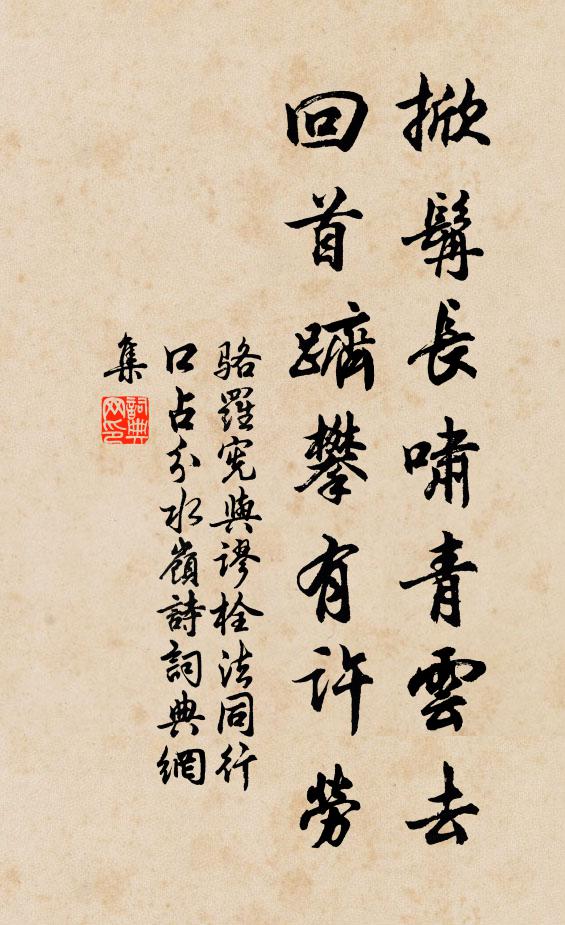 掀髯長嘯青雲去
回首躋攀有許勞
駱羅憲與謬栓法同行
口占分水嶺詩詞典網
集
詞典網印